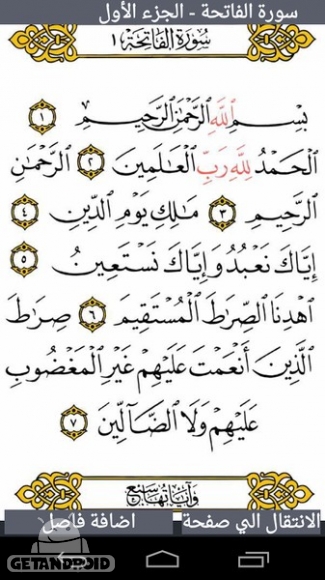 سورة الفاتحة - الجزء الأول
سُورَةُ الْفَاتِحَة ١
بِسْمِ ٱللَّهِ ٱلرَّحْمَٰنِ ٱلرَّحِيمِ ١
ٱلْحَمْدُ لِلَّهِ رَبِّ ٱلْعَٰلَمِينَ ٢ ٱلرَّحْمَٰنِ
ٱلرَّحِيمِ ٣ مَٰلِكِ يَوْمِ ٱلدِّينِ ٤
إِيَّاكَ نَعْبُدُ وَإِيَّاكَ نَسْتَعِينُ ٥
ٱهْدِنَا ٱلصِّرَٰطَ ٱلْمُسْتَقِيمَ ٦ صِرَٰطَ
ٱلَّذِينَ أَنْعَمْتَ عَلَيْهِمْ غَيْرِ ٱلْمَغْضُوبِ
عَلَيْهِمْ وَلَا ٱلضَّآلِّينَ ٧
وَآيَاتُهَا سَبْعٌ
الانتقال الي صفحة
اضافة فاصل
GETANDROID